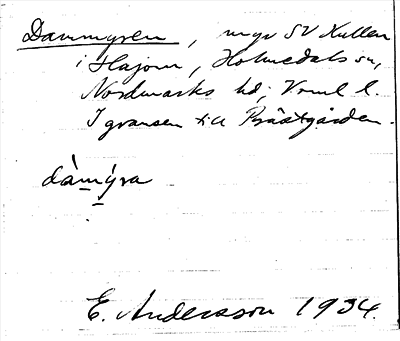 Dammyren, myr SV Kullen
i Hajom, Holmedals sn,
Nordmarks hd, Vrml l.
I gränsen till Prästgården.
dàmýra
E. Andersson 1934.